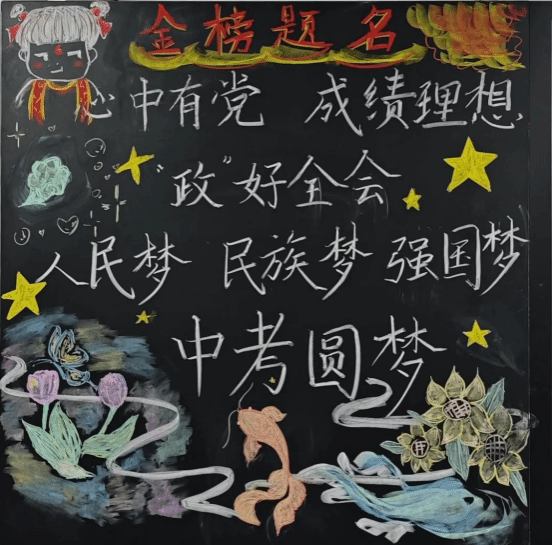 金榜题名
心中有党 成绩理想
"政"好全会
人民梦 民族梦 强国梦
中考圆梦